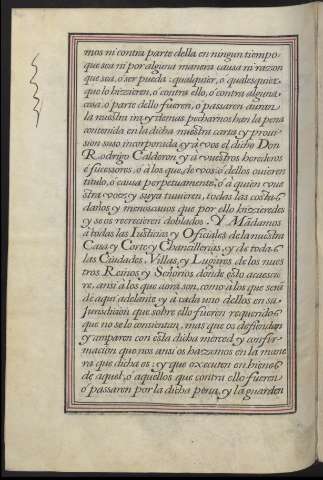 mos ni contra parte della en ningun tiempo
que sea ni por alguna manera causa ni razon
que sea, o ser pueda: qualquier, o qualesquier
que lo hizieren, o contra ello, o contra alguna
cosa, o parte dello fueren, o passaren auran
la nuestra ira, y demas pecharnos han la pena
contenida en la dicha nuestra carta y proui
sion suso incorporada, y a vos el dicho Don
Rodrigo Calderon, y a vuestros herederos
e sucessores, o a los que de vos o dellos ouieren
titulo, o causa perpetuamente, o a quien vue
stra voz, y suya tuuieren, todas las costas
daños y menoscauos que por ello hizieredes
y se os recrecieren doblados. Y Mãdamos
a todas las Iusticias y Oficiales de la nuestra
Casa y Corte y Chancillerias, y de todas
las Ciudades, Villas, y Lugares de los nues
tros Reinos y Señorios donde esto acaescie
re, ansi a los que aora son, como a los que serã
de aqui adelante y a cada uno dellos en su
Jurisdicion que sobre ello fueren requeridos
que no se lo consientan, mas que os defiendan
y amparen con esta dicha merced, y confir
macion que nos ansi os hazemos en la mane
ra que dicha es: y que executen en bienes
de aquel, o aquellos que contra ello fueren
o passaren por la dicha pena, y la guarden